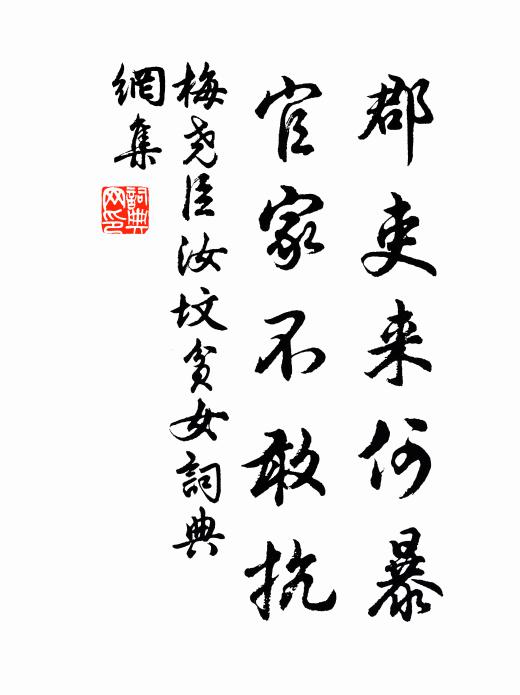 郡吏来何暴
官家不敢抗
梅尧臣汝坟贫女詞典
網集
詞典网印